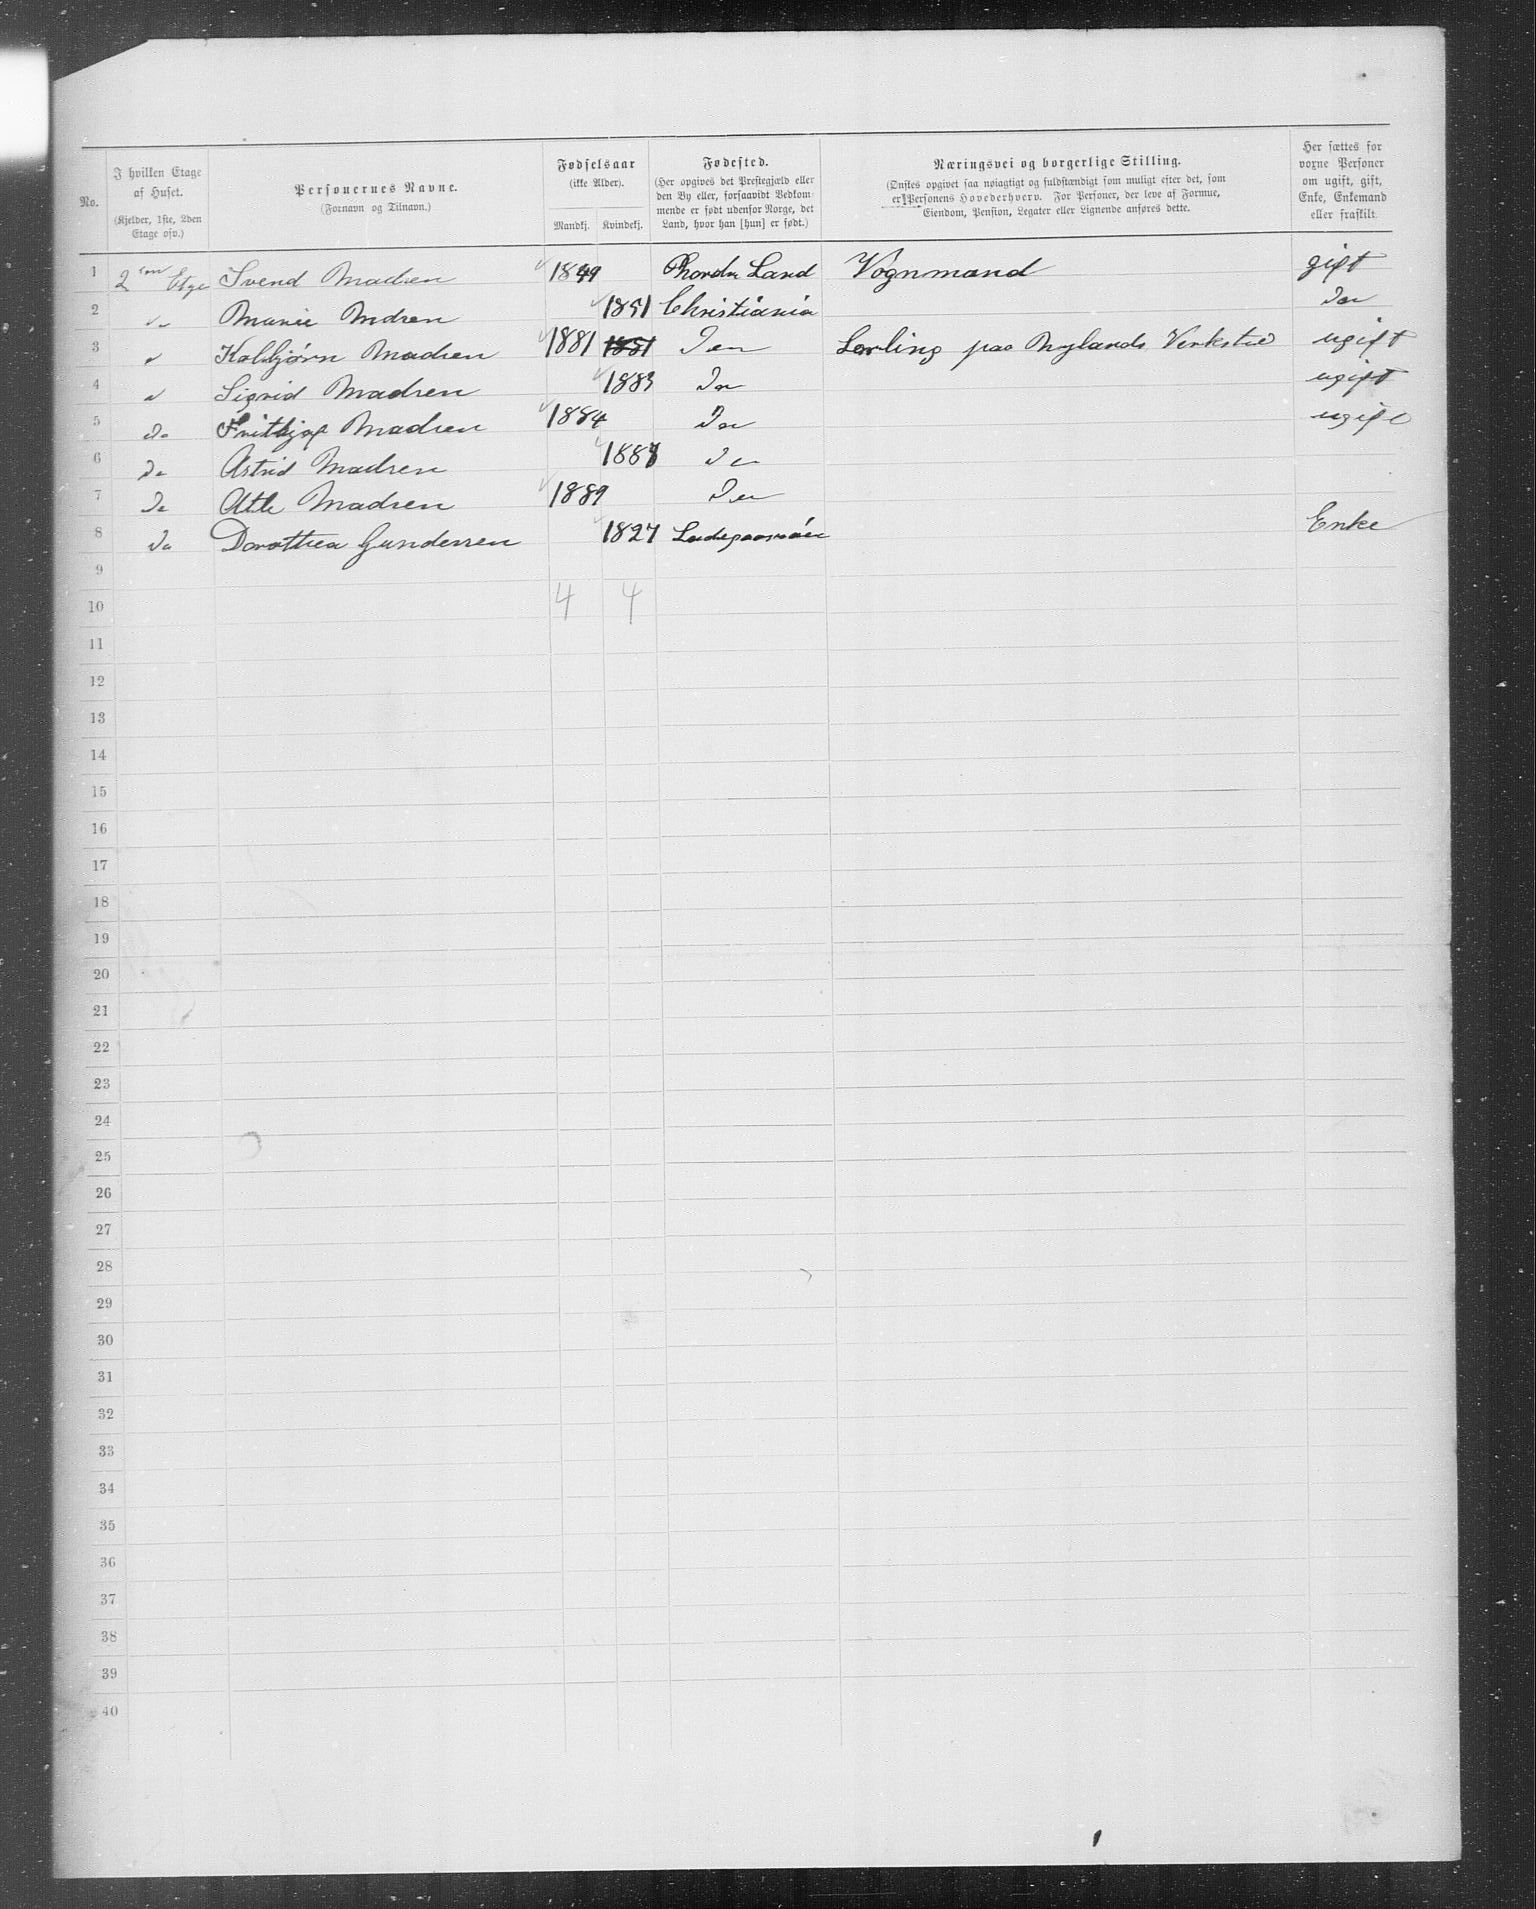 No.	I hvilken Etage af Huset. (Kjelder, 1ste, 2den Etage osv.)	Personernes Navne. (Fornavn og Tilnavn.)	Fødselsaar (ikke Alder). Mandkj.	Kvindekj.	Fødested. (Her opgives det Prestegjæld eller den By eller, forsaavidt Vedkommende er født udenfor Norge, det Land, hvor han [hun] er født.)	Næringsvei og borgerlige Stilling. (Ønskes opgivet saa nøiagtigt og fuldstændigt som muligt efter det, som er Personens Hovederhverv. For Personer, der leve af Formue, Eiendom, Pension, Legater eller Lignende anføres dette.)	Her sættes for voxne Personer om ugift, gift, Enke, Enkemand eller fraskilt.
1 2 Etge Svend Madsen 1849 Land Vognmand gift
2 Marie Mdsen 1851 Christiania Do
3 Kolbjørn Madsen 1881 1881 Do Lærling paa Nylands Verksted ugift
4 Sigrid Madsen 1883 Do ugift
5 Do Fritjof Madsen 1884 Do ugift
6 Do Astrid Madsen 1887 Do
7 Do Atle Madsen 1889 Do
8 Do Dorothea Gundersen 1827 Enke
9
4 4
10
11
12
13
14
15
16
17
18
19
20
21
22
23
24
25
26
27
28
29
30
31
32
33
34
35
36
37
38
39
40